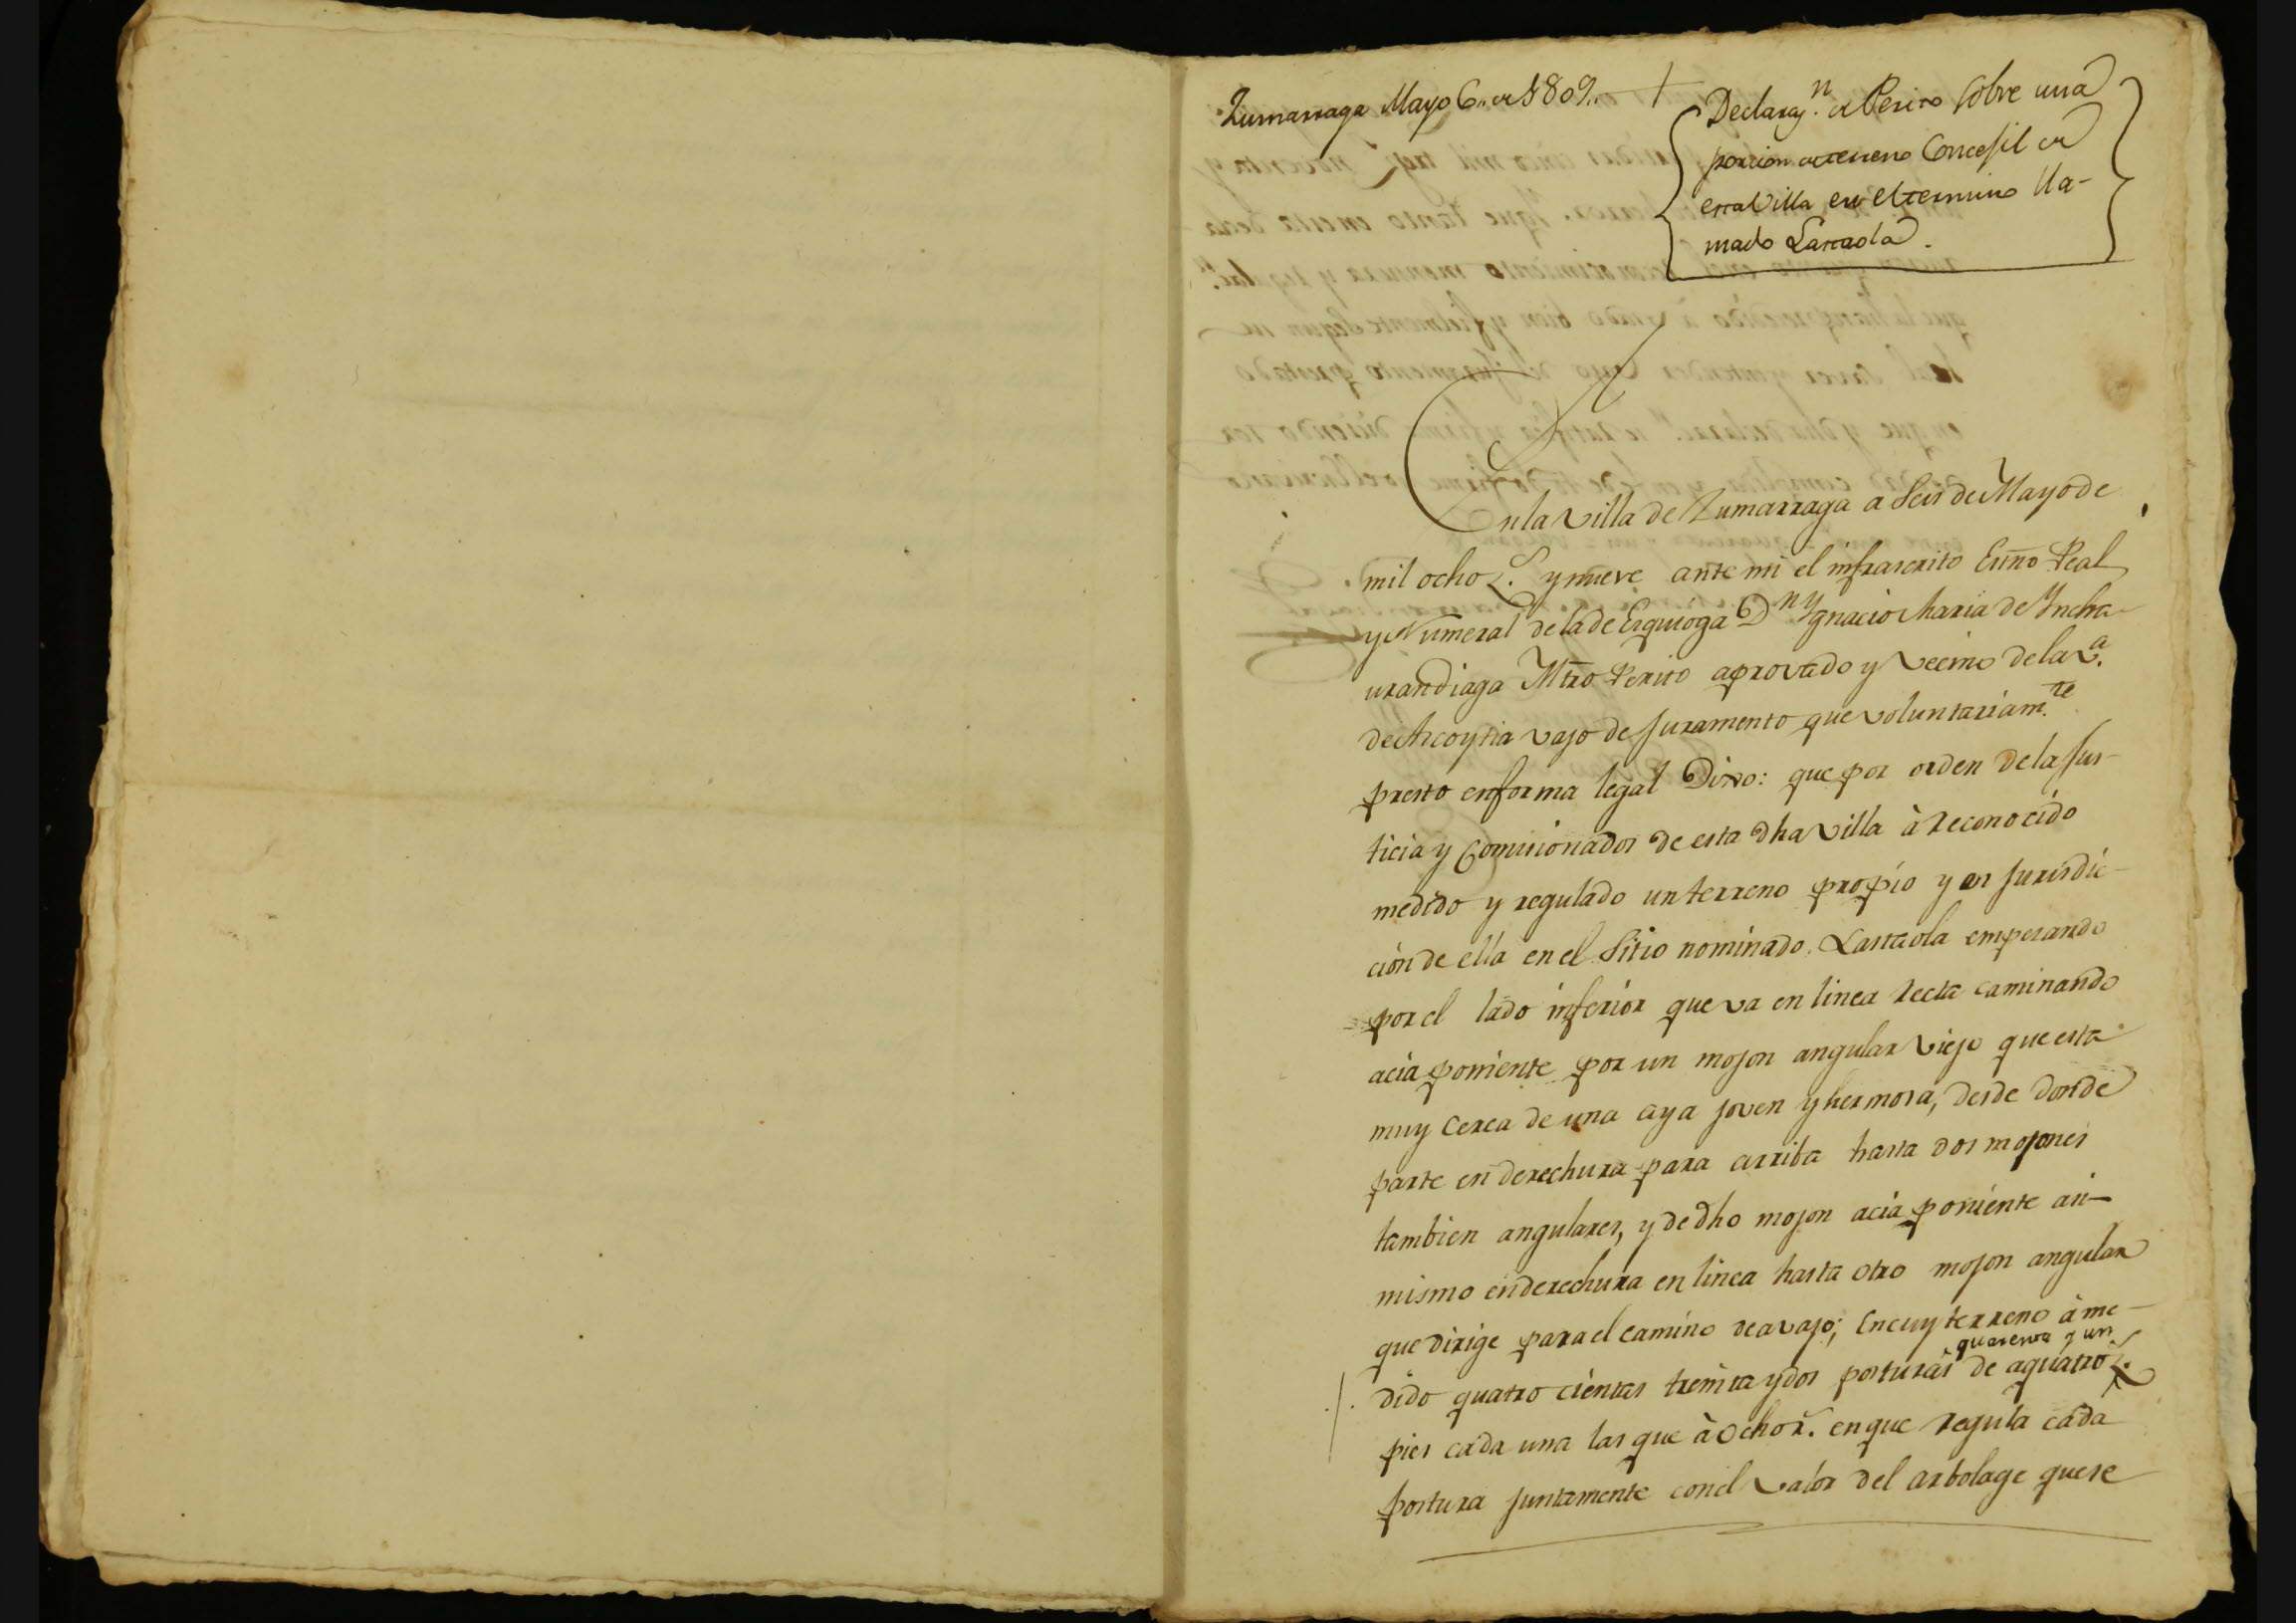 Zumarraga Mayo 6,, de 1809,, +
Declarazⁿ. de Perito sobre una
porcion de terreno Concejil de
esta Villa en el termino lla-
mado Lastaola.
En la villa de Zumarraga a Seis de Mayo de
mil ochoz.s y nueve ante mi el infrascrito Esno Real
y Numeral de la de Ezquioga Dn Ygnacio Maria de Yncha
urandiaga Mtro Perito aprovado y vecino de la va.
de Azcoytia vajo de Juramento que voluntariam.te
presto en forma legal Dixo: que por orden de la Jus-
ticia y Comisionados de esta dha villa à reconocido
medido y regulado un terreno propio y en Jurisdic-
ción de ella en el Sitio nominado Lastaola empesando
por el lado inferior que va en linea recta caminando
acia poniente por un mojon angular viejo que esta
muy cerca de una aya joven y hermosa, desde donde
parte en derechura para arriba hasta dos mojones
tambien angulares, y de dho mojon acia poniente asi-
mismo en derechura en linea hasta otro mojon angular
que dirige para el camino de avajo; en cuyo terreno à me-
quarenta y un
dido quatro cientas treinta y dos posturas de a quatroz.s
pies cada una las que à ocho r.s en que regula cada
postura juntamente con el valor del arbolage que se